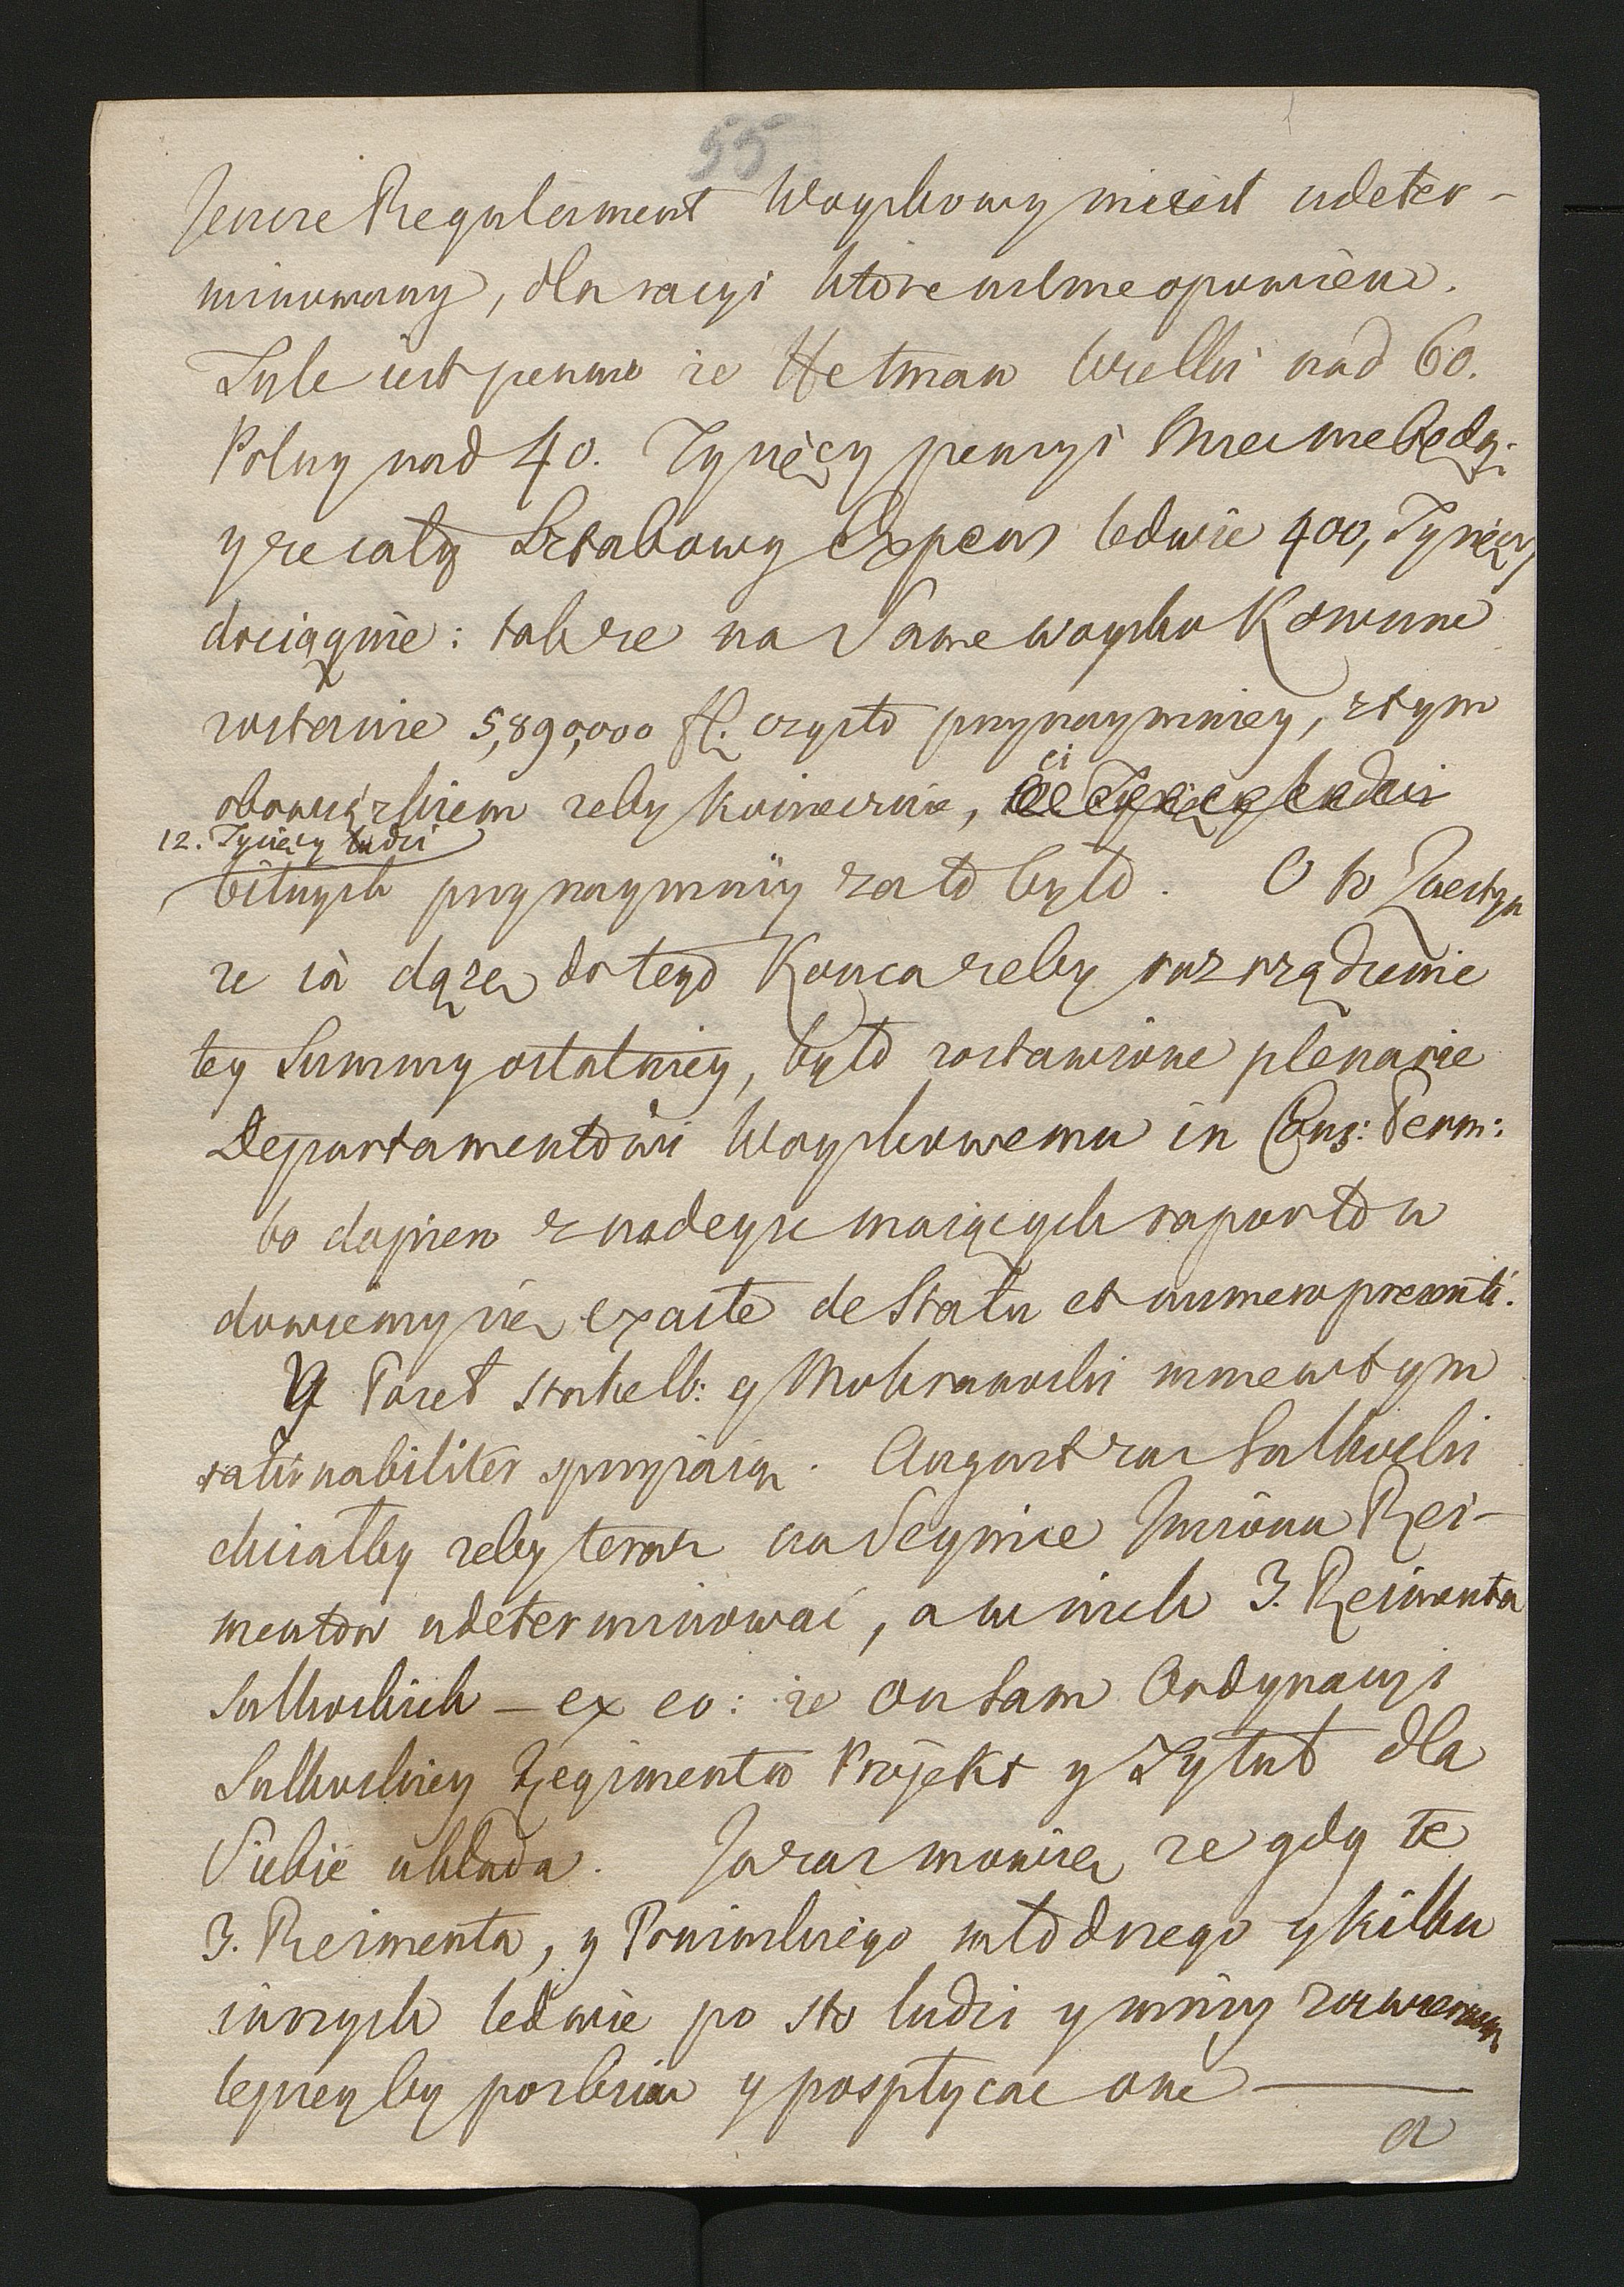 55
Jeszcze Regulament Woyskowy nie iest udeter-
minowany, dla racyi ktore ustnie opowiem.
Tyle iest pewno ze Hetman Wielki nad 60.
Polny nad 40. Tysięcy pensyi miec nie będą.
y ze cały Sztabowy Expens ledwie 400, Tysięcy
dociągnie: tak ze na Same woysko Koronne
zostanie 5,890,000 fl. czysto przynaymniey, z tym
obowiązkiem zeby koniecznie,
12. Tysięcy ludzi
bitnych przynaymniy za to było. O to
ze ia dązę do tego Konca zeby rozrządzenie
tey Summy ostatniey, było zostawione plenarie
Departamentowi Woyskowemu in Cons: Perm:
bo dopiero z nadeyść maiących raportow
dowiemy się exacte de Statu et numero presenti.
Y Poset Stakelb: y Mokranowski mnie w tym
rationabiliter sprzyiaią. August zas Sulkowski
chciałby zeby teraz na Seymie Imiona Rei-
mentow udeterminować, a w nich 3. Reimenta
Sulkowskich – ex eo: ze on sam Ordynacyi
Sulkowskiey Regimentow Projekt y Tytuł dla
Siebie układa. Ja zas mowię, ze gdy te
3. Reimenta, y Poninskiego młodszego y kilku
innych ledwie po sto ludzi y mniy zawieraią
lepiey by poskasować y pospłycac one —
a